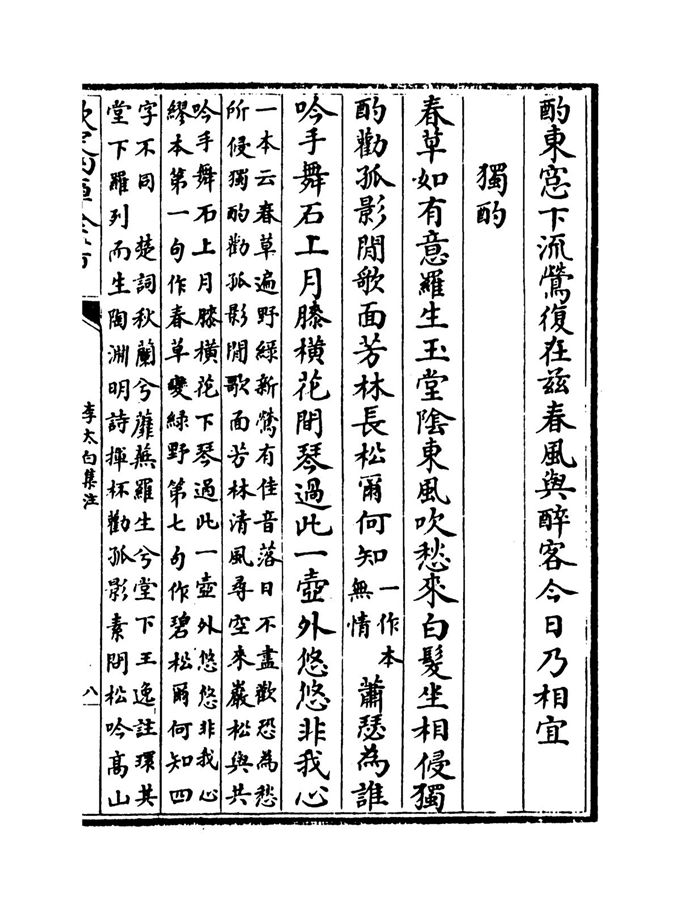 酌東窓下流鶯復在兹春風與醉客今日乃相宜
獨酌
春草如有意羅生玉堂隂東風吹愁來白髮坐相侵獨
酌勸孤影閒歌面芳林長松爾何知一作本無情蕭瑟為誰
吟手舞石上月膝横花間琴過此一壺外悠悠非我心
一本云春草遍野綠新鶯有佳音落日不盡歡恐為愁
所侵獨酌勸孤影閒歌面芳林清風尋空來巖松與共
吟手舞石上月膝横花下琴過此一壺外悠悠非我心
繆本第一句作春草變綠野第七句作碧松爾何知四
字不同 楚詞秋蘭兮蘼蕪羅生兮堂下王逸註環其
堂下羅列而生陶淵明詩揮杯勸孤影素問松吟髙山
李太白集注
八